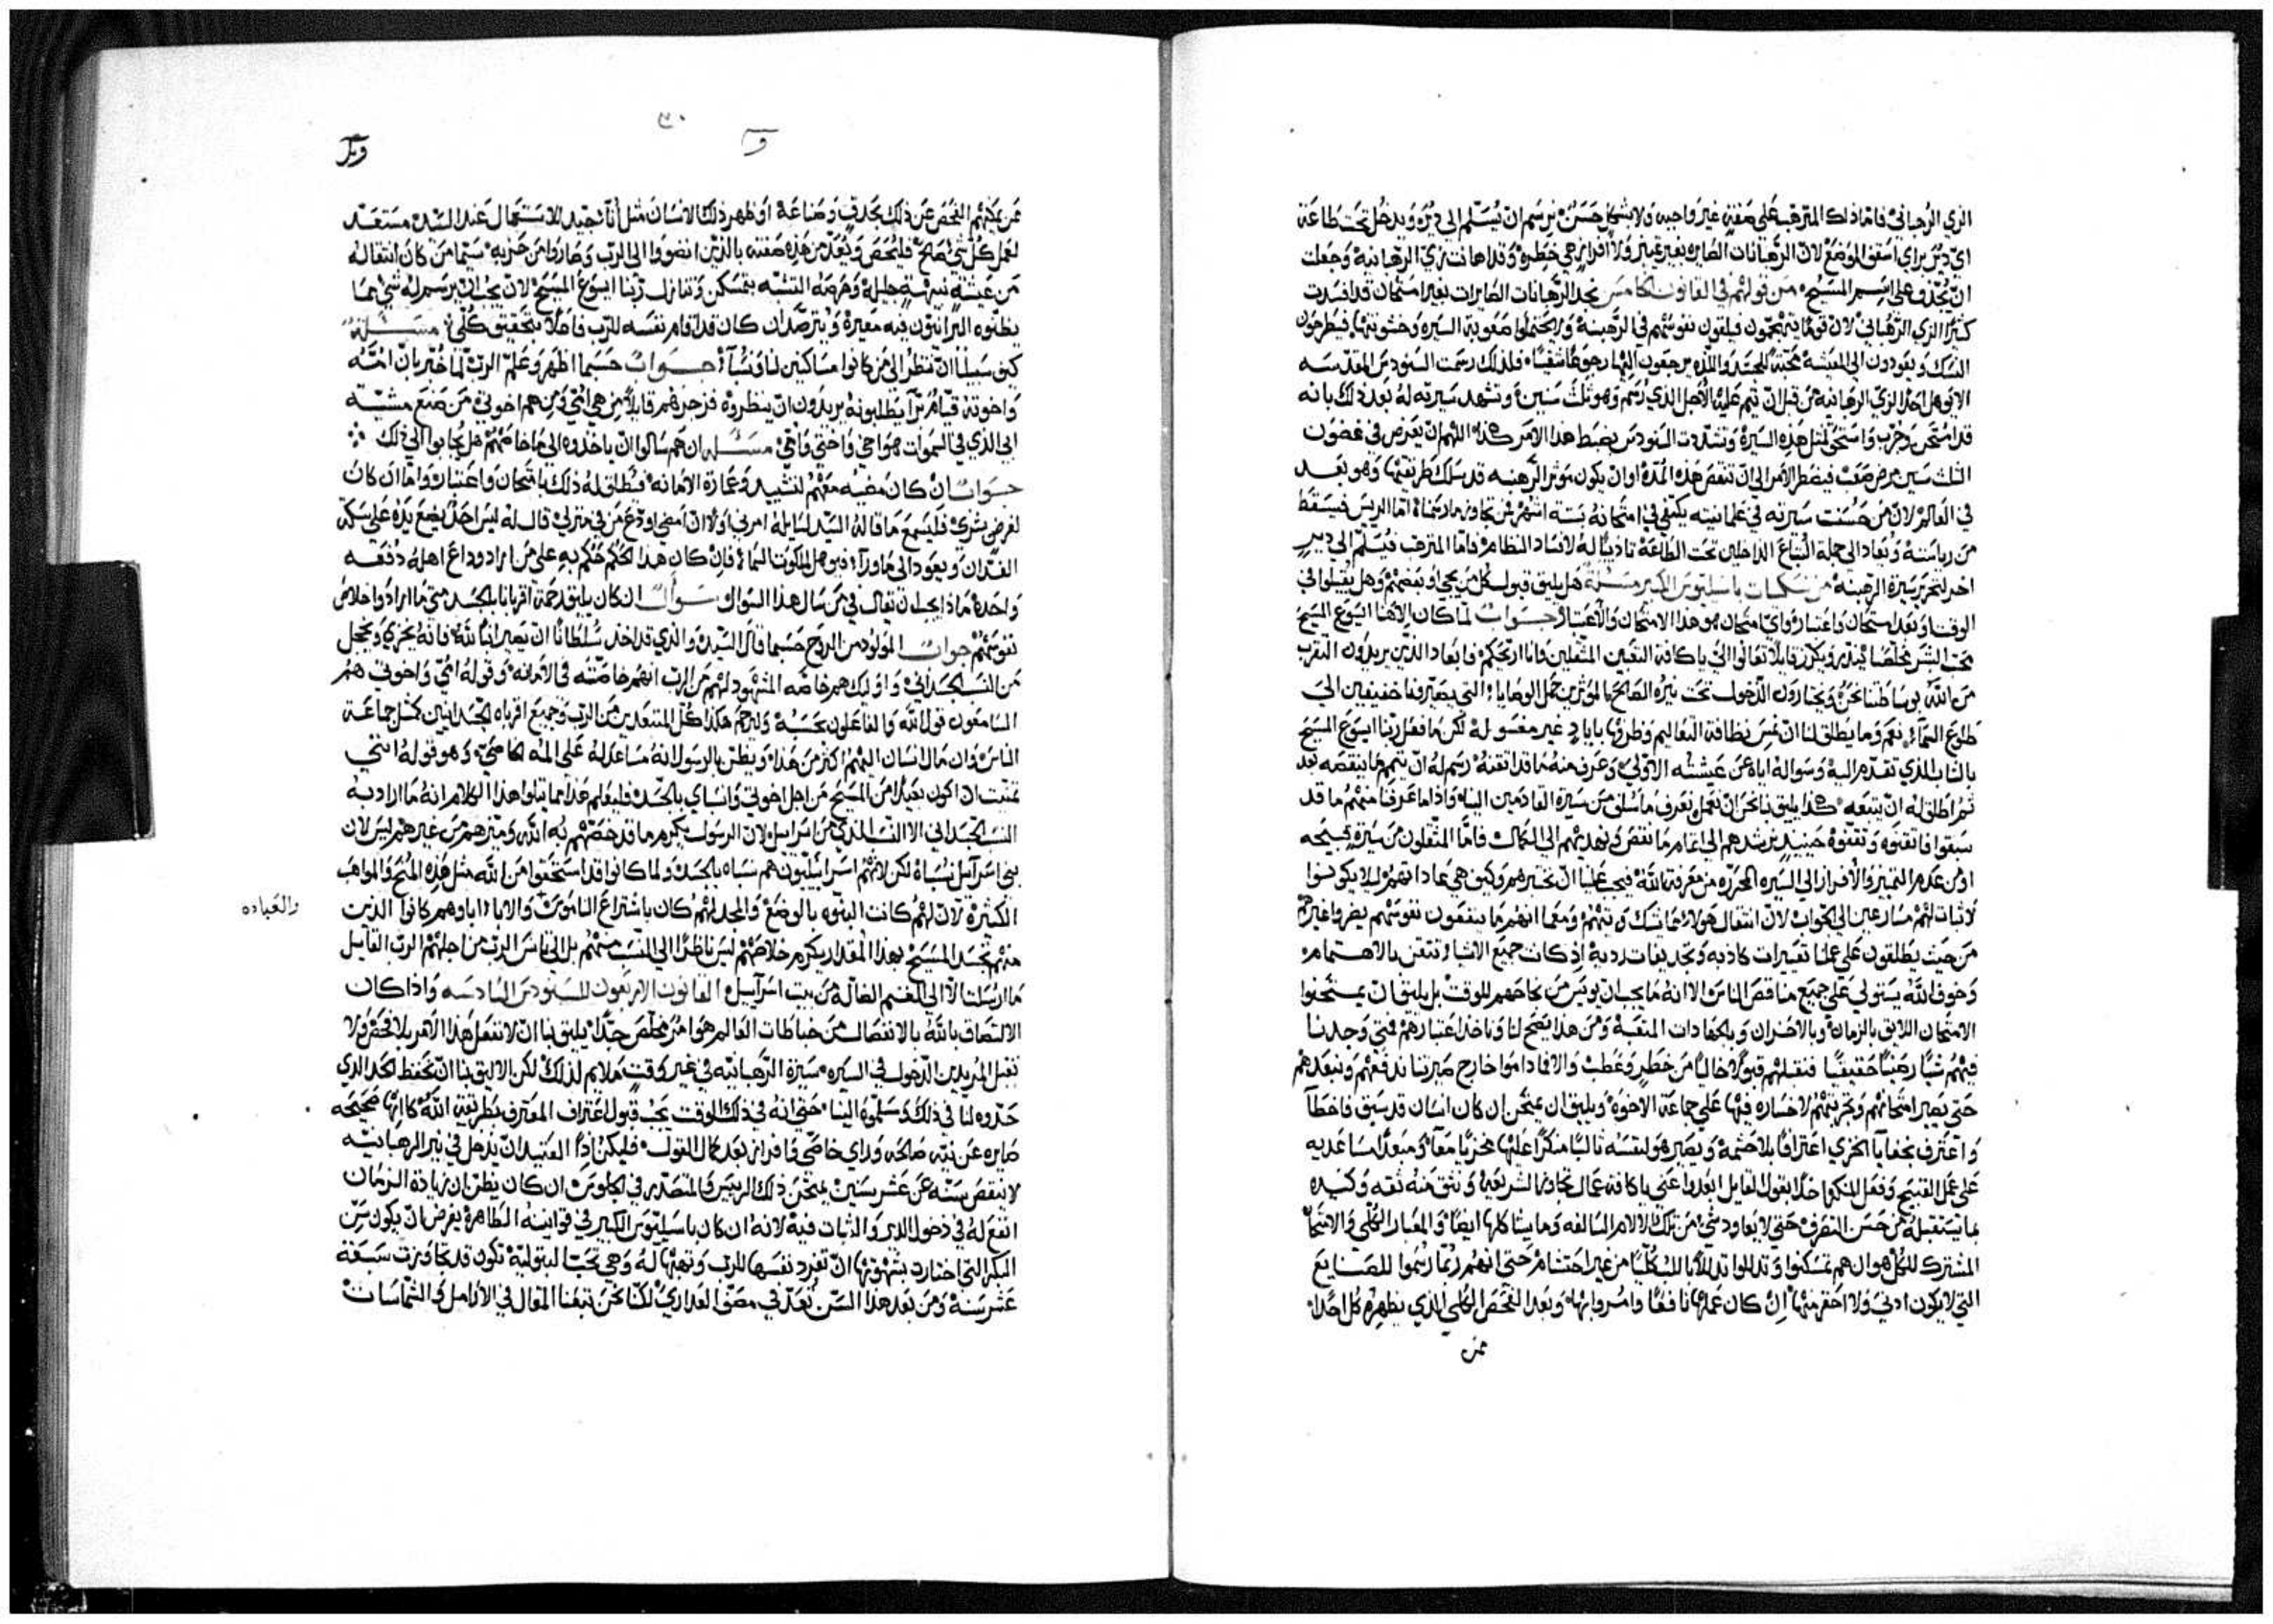 الزي الرهباني فاما ذلك المترهب على صفة غير واجبه ولا بشكل حسن نرسم ان يسلم الى ديره ويدخل تحت طاعة
اي دير براي اسقف الموضع لان الرهبانات الصايره بغير تمييز ولا افراز هي خطره وقد اهانت زي الرهبانية وجعلت
ان يجدف على اسم المسيح من قولهم في القانون الخامس نجد الرهبانات الصايرات بغير امتحان قد افسدت
كثيرا الزي الرهباني لان قوما يتهجمون فيلقون نفوسهم في الرهبنة ولا يحتملوا صعوبة السيره وخشونتها فيطرحون
النسك ويعودون الى المعيشة المحبة للجسد واللذه يرجعون اليها رجوعا شقيا فلذلك رسمت السنودس المقدسه
الا يوهل احد الزي الرهبانيه من قبل ان يتم عليه الاجل الذي رسم وهو ثلث سنين وتشهد سيرته له بعد ذلك بانه
قد امتحن وجرب واستحق لمثل هذه السيرة وتشددت السنودس بضبط هذا الامر هكذا اللهم ان يعرض في غضون
الثلث سنين مرض صعب فيضطر الامر الى ان تنقص هذه المدة او ان يكون موثر الرهبنه قد سلك طريقتها وهو بعد
في العالم لان من حسنت سيرته في علمانيته يكتفي في امتحانه بستة اشهر فمن تجاوز ما رسمناه اما الريس فيسقط
من رياسته ويعاد الى جملة الاتباع الداخلين تحت الطاعة تاديبا له لافساد النظام فاما المترهب فيسلم الى دير
اخر لتحرير سيرة الرهبنة من نسكيات باسيليوس الكبير مسئلة هل يليق قبول كل من يجي او بعضهم وهل يقبلوا في
الوقت او بعد امتحان واعتبار واي امتحان هو هذا الامتحان والاعتبار جواب لما كان الاهنا ايسوع المسيح
محب البشر مخلصا ينذر ويكرز قايلا تعالوا الي يا كافة التعبين المثقلين وانا اريحكم فابعاد الذين يريدون التقرب
من الله بوساطتنا نحن ويختارون الدخول تحت نيره الصالح الموثرين حمل الوصايا التي يصيرونها خفيفين الى
طلوع السماء نعم وما يطلق لنا ان نمس نظافة التعاليم وطروها باياد غير مغسوله لكن ما فعل ربنا ايسوع المسيح
بالشاب الذي تقدم اليه وسواله اياه عن عيشته الاولى وعرف منه ما قد اتقنه رسم له ان يتمم ما ينقصه بعد
ثم اطلق له ان يتبعه هكذا يليق بنا نحن ان نعمل ونعرف ما سلف من سيرة القادمين الينا واذا ما عرفنا منهم ما قد
سبقوا فاتقنوه وتقفوه حينيد نرشدهم الى اتمام ما نقص ونهديهم الى الكمال فاما المنتقلون من سيرة قبيحه
او من عدم التمييز والافراز الى السيره المحرره من معرفة الله فيجب علينا ان نختبرهم وكيف هي عاداتهم لئلا يكونوا
لا ثبات لهم مسارعين الى الجواب لان انتقال هولاء مما يشك فيه منهم ومع ما انهم ما ينفعون نفوسهم يضروا غيرهم
من حيث يطلقون على عملنا تعييرات كاذبه وتجديفات رديه اذ كانت جميع الاشيا تتقن بالاهتمام
وخوف الله يستولي على جميع مناقص الناس الا انه ما يجب ان يويس من نجاحهم للوقت بل يليق ان يمتحنوا
الامتحان اللايق بالزمان وبالاحزان وبالجهادات المتعبة ومن هذا يتضح لنا وناخذ اعتبارهم فمتى وجدنا
فيهم شيا رضيا حقيقيا فنقبلهم قبولا خاليا من خطر وعطب والا فما داموا خارج صيرتنا ندفعهم ونبعدهم
حتى يصير امتحانهم وتجربتهم لا خساره فيها على جماعة الاخوة ويليق ان يمتحن ان كان انسان قد سبق فاخطا
واعترف بخفايا الخزي اعترافا بلا حشمه ويصير هو لنفسه ثالبا منكرا عليها مخزيا معا ومبعدا مساعديه
على عمل القبيح وفعل المنكر اخلا بقول القايل ابعدوا عني يا كافه عمال تجاوز الشريعة ونثق منه ثقه وكيده
بما يستقبله من حسن التصرف حتى لا يعاود شي من تلك الالام السالفه وما يشاكلها ايضا والمعيار الكلي والامتحان
المشترك للكل هو ان هم تمسكنوا وتذللوا تذللا بالكليا من غير احتشام حتى انهم ربما رسموا للصنايع
التي لا يكون ادنى ولا احقر منها ان كان عملها نافعا وامروا بها وبعد الفحص الكلي الذي يظهره كل احد
ممن
٣٠
ممن يمكنهم الفحص عن ذلك بحدق وصناعة او ظهر ذلك الانسان مثل اناء جيد للاستعمال عند السيد مستعد
لعمل كل شي صالح فليحص ويعد من هذه صفته بالذين انضووا الى الرب وصاروا من حزبه سيما من كان انتقاله
من عيشة نبيهة جليلة وغرضه التشبه بتمسكن وتنازل ربنا ايسوع المسيح لان يجب ان يرسم له شي مما
يظنوه البرانيون فيه معيرة ويترصد ان كان قد اقام نفسه للرب فاعلا بتحقيق كلي مسئلة
كيف سبيلنا ان ننظر الى من كانوا مساكنين لنا ونسبا جواب حسبما اظهر وعلم الرب لما خبر بان امه
واخوته قيام برا يطلبونه يريدون ان ينظروه فزجرهم قايلا من هي امي ومن هم اخوتي من صنع مشية
ابي الذي في السموات هو اخي واختي وامي مسئلة ان هم سالوا ان ياخذوه الى ما خاصتهم هل يجابوا الى ذلك
جواب ان كان مضيه معهم لتشييد وعمارة الامانه فيطلق له ذلك بامتحان واعتبار واما ان كان
لغرض بشري فليسمع ما قاله السيد لسايله امرني اولا ان امضي اودع من في منزلي قال له ليس احد يضع يده على سكة
الفدان ويعود الى ما وراه فيوهل لملكوت السماء فان كان هذا الحكم حكم به على من اراد وداع اهله دفعه
واحدة ماذا يجب ان يقال في من سال هذا السوال سوال ان كان يليق رحمة اقربانا بالجسد متى ما ارادوا خلاص
نفوسهم جواب المولود من الروح حسبما قال السيد والذي قد اخذ سلطانا ان يصير ابنا لله فانه يخزي ويخجل
من النسب الجسداني واوليك هم خاصه المشهود لهم من الرب انهم خاصته في الامانه وقوله امي واخوتي هم
السامعون قول الله والفاعلون بحسبه وليرحم هكذا كل المبتعدين من الرب وجميع اقرباه الجسدانيين كمثل جماعة
الناس وان مال انسان اليهم اكثر من هذا ويظن بالرسول انه مساعد له على المه الخاصي وهو قوله انني
تمنيت ان اكون بعيدا من المسيح من اجل اخوتي وانسباي بالجسد فليعلم هذا مما يتلوا هذا الكلام انه ما اراد به
النسب الجسداني الا النسب الذي من اسراييل لان الرسول يكرم ما قد خصصهم به الله وميزهم من غيرهم ليس لان
بني اسراييل نسباه لكن لانهم اسراييليون هم نسباه بالجسد ولما كانوا قد استحقوا من الله مثل هذه المنح والمواهب
الكثيرة لان لهم كانت البنوه بالوضع والمجد لهم كان باشتراع الناموس والاباء اباوهم كانوا الذين
والعباده
منهم تجسد المسيح بهذا المقدار يكرم خلاصهم ليس ناظرا الى النسب منهم بل الى تانس الرب من اجلهم الرب القايل
ما ارسلت الا الى الغنم الضالة من بيت اسراييل القانون الاربعون للسنودس السادسه واذا كان
الالتصاق بالله بالانفصال من خباطات العالم هو امر مخلص جدا يليق بنا ان لا نفعل هذا الامر بلا فحص ولا
نقبل المريدين الدخول في السيره سيرة الرهبانيه في غير وقت ملايم لذلك لكن الاليق بنا ان نحفظ الحد الذي
حددوه لنا في ذلك وسلموه الينا حتى انه في ذلك الوقت يجب قبول اعتراف المعترف بطريقة الله كانها صحيحه
صايره عن نيه صالحه وراي خاصي وافراز بعد كمال القول فليكن اذا العتيد ان يدخل في نير الرهبانيه
لا ينقص سنه عن عشر سنين يمتحن ذلك الرييس والمتصدر في الجلوس ان كان يظن ان زيادة الزمان
انفع له في دخول الدير والثبات فيه لانه ان كان باسيليوس الكبير في قوانينه الطاهرة يفرض ان يكون سن
البكر التي اختارت بشهوتها ان تفرد نفسها للرب وتهبها له وهي تحب البتوليه تكون قد تجاوزت سبعة
عشر سنة ومن بعد هذا السن تعد في مصف العذارى لكنا نحن تبعنا المقال في الارامل والشماسات